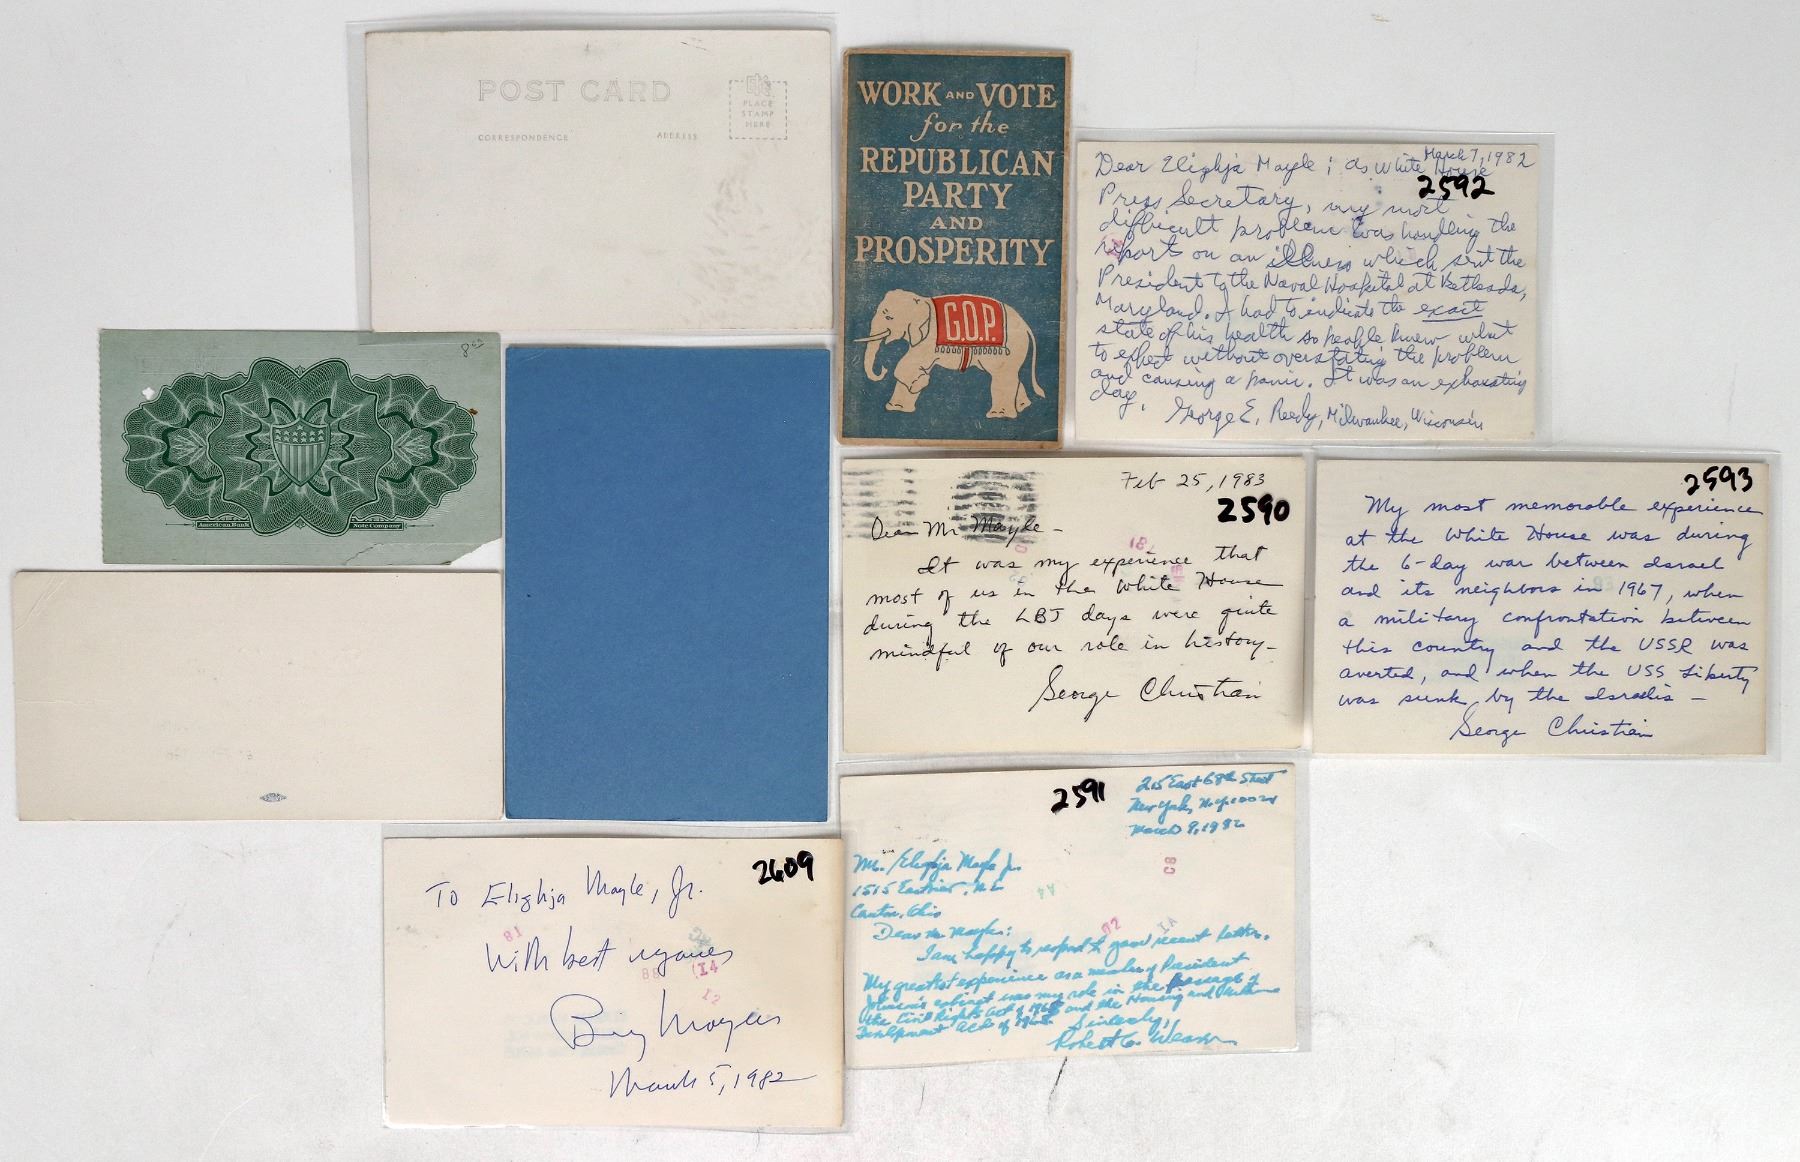 POST CARD
CORRESPONDENCE
ADDRESS
PLACE
STAMP
HERE
WORK AND VOTE
for the
REPUBLICAN
PARTY
AND
PROSPERITY
G.O.P.
March 7, 1982
Dear Elighja Mayle; as White House
2592
Press Secretary, my most
difficult problem was handling the
reports on an illness which sent the
President to the Naval Hospital at Bethesda,
Maryland. I had to indicate the exact
state of his health so people knew what
to expect without overstating the problem
and causing a panic. It was an exhausting
day.
George E. Reedy, Milwaukee, Wisconsin
8
American Bank
Note Company
Feb 25, 1983
2590
Dear Mr. Mayle -
It was my experience that
most of us in the White House
during the LBJ days were quite
mindful of our role in history -
George Christian
2593
My most memorable experience
at the White House was during
the 6-day war between Israel
and its neighbors in 1967, when
a military confrontation between
this country and the USSR was
averted, and when the USS Liberty
was sunk by the Israelis -
George Christian
2591
215 East 68th Street
New York, N.Y. 10021
March 9, 1982
Mr. Elighja Mayle Jr.
1515 N.E.
Canton, Ohio
Dear Mr. Mayle:
I am happy to respond to your recent letter.
My greatest experience as a member of President
Johnson's cabinet was my role in the passage of
the Civil Rights Act of and the Housing and Urban
Development Acts of
Sincerely,
Robert C. Weaver
2609
To Elighja Mayle, Jr.
With best regards
Bill Moyers
March 5, 1982